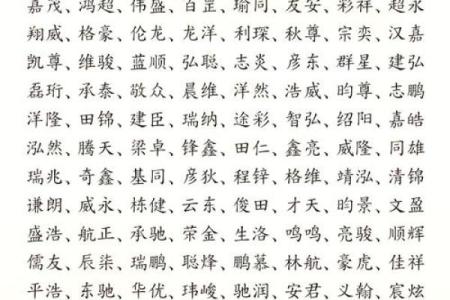 嘉茂、鸿超、伟盛、百罡、瑜同、友安、彩祥、超永
翔威、格豪、伦龙、龙洋、利琛、秋尊、宗奕、汉嘉
凯尊、维骏、蓝顺、弘聪、志炎、彦东、群星、建弘
磊珩、承泰、敬众、晨维、洋然、浩威、昀尊、志鹏
洋隆、田锦、建臣、瑞纳、途彩、智弘、绍阳、嘉皓
泓然、腾天、梁卓、锋鑫、田仁、鑫亮、威隆、同雄
瑞兆、奇鑫、基同、彦狄、程锌、格维、靖泓、清锦
谦朗、威永、栋健、云东、俊田、才天、昀景、文盈
盛浩、航正、承驰、荣金、生洛、鸣鸣、亮骏、顺辉
儒友、辰柒、瑞鹏、聪烽、鹏慕、林航、豪虎、佳祥
平浩、东驰、华优、玮峻、驰润、安君、义翰、宸炫